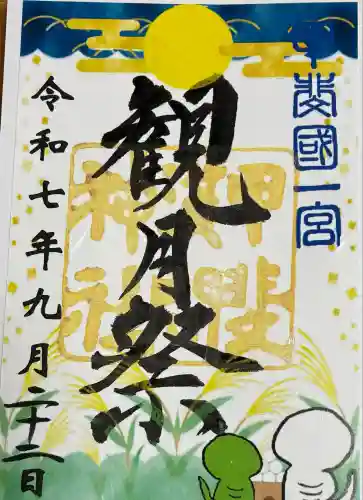 甲斐國一宮
観月祭
浅間神社
令和七年九月二十二日